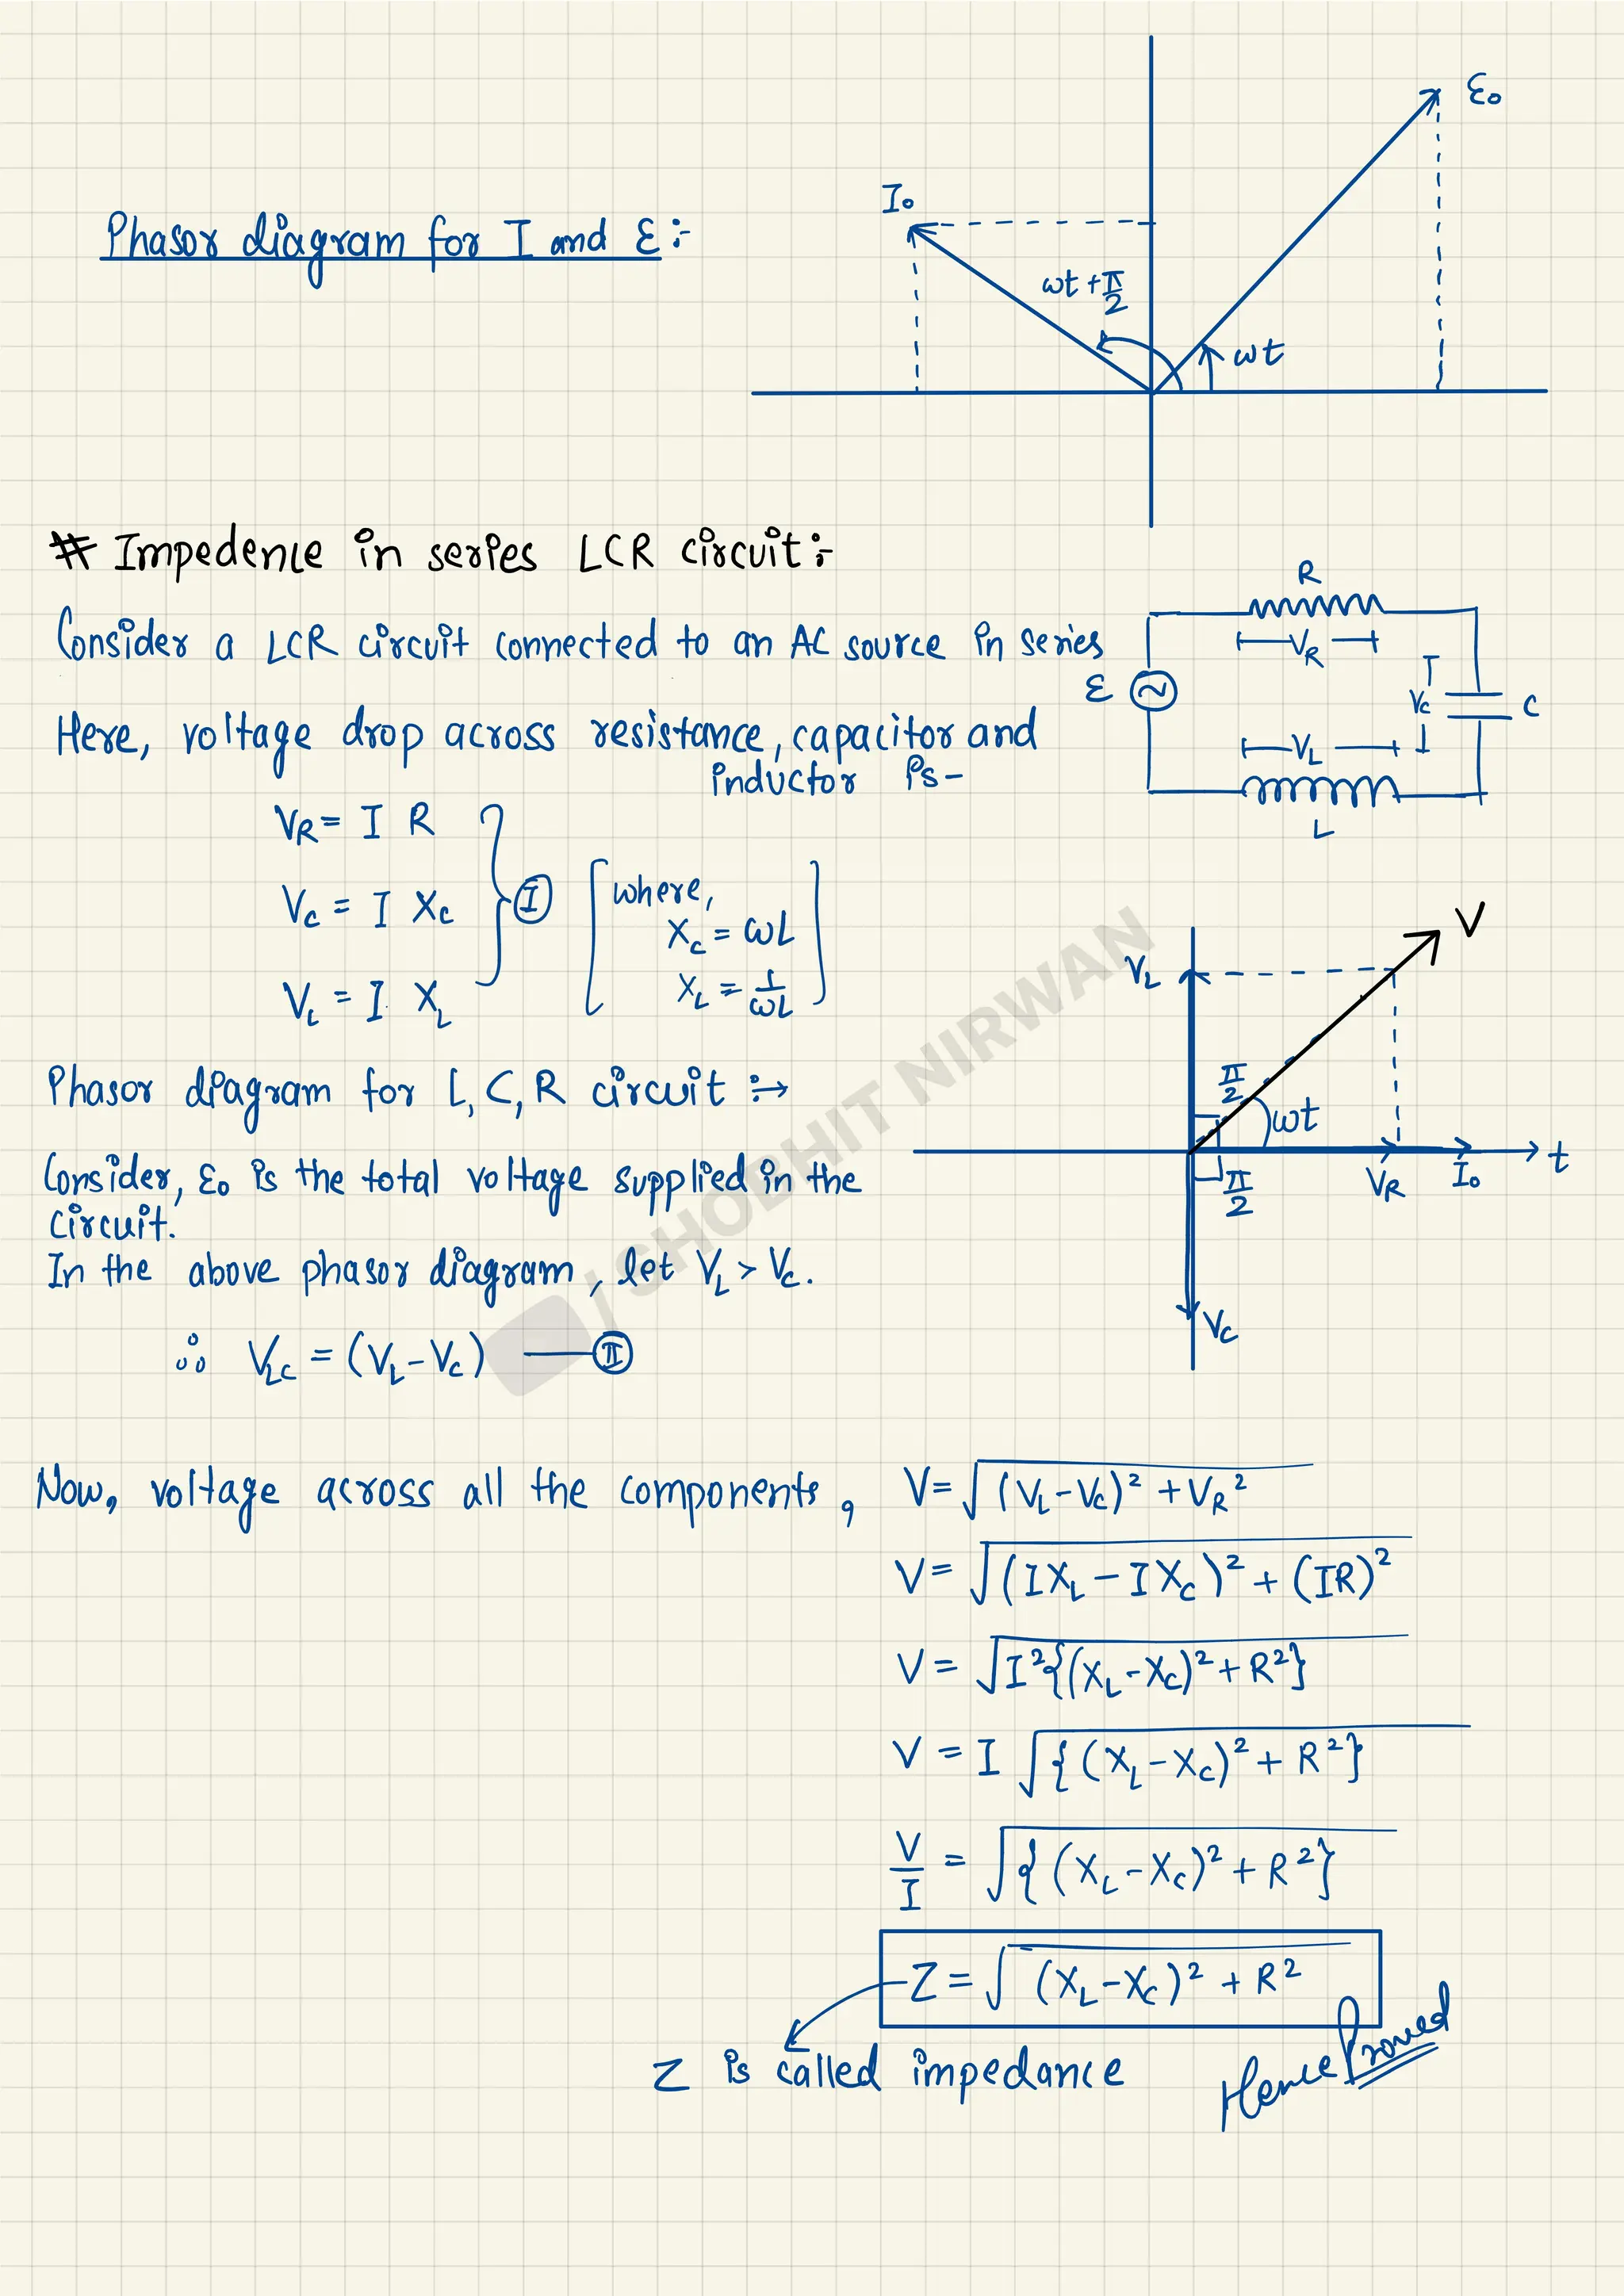 ε₀
I₀
Phasor diagram for I and ε :-
ωt + π/2
ωt
# Impedence in series LCR circuit :-
R
Consider a LCR circuit connected to an AC source in series
V_R
ε
V_C
C
Here, voltage drop across resistance, capacitor and
inductor is -
V_L
L
V_R = I R
V_C = I X_C
I
V_L = I X_L
where,
X_C = ωL
X_L = 1/ωL
V
V_L
π/2
ωt
t
π/2
V_R
I₀
V_C
Phasor diagram for L, C, R circuit :→
Consider, ε₀ is the total voltage supplied in the
circuit.
In the above phasor diagram, let V_L > V_C.
∴ V_LC = (V_L - V_C) — II
/ SHOBHIT NIRWAN
Now, voltage across all the components, V = √((V_L - V_C)² + V_R²)
V = √((I X_L - I X_C)² + (IR)²)
V = √(I²{(X_L - X_C)² + R²})
V = I √({(X_L - X_C)² + R²})
V/I = √({(X_L - X_C)² + R²})
Z = √((X_L - X_C)² + R²)
Z is called impedance
Hence Proved